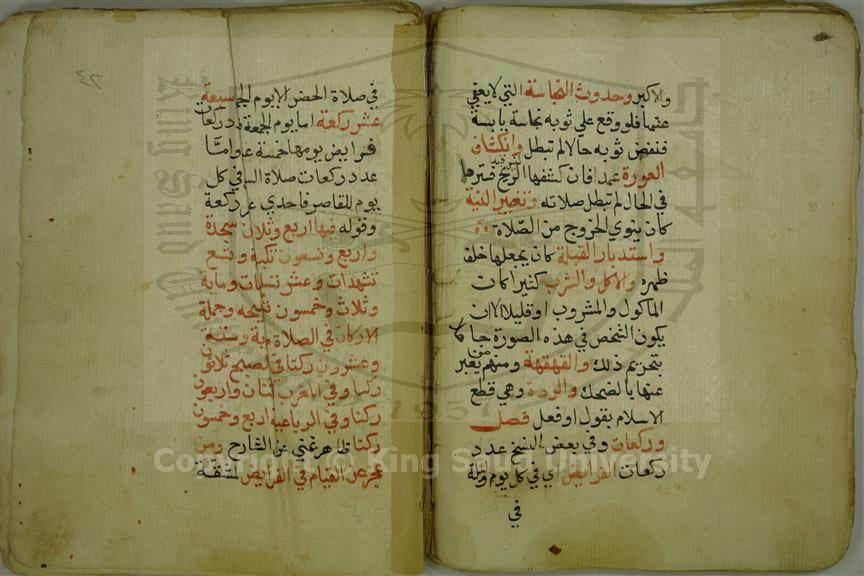 والاكبر وحدوث النجاسة التي لا يعفي
عنها فلو وقع علي ثوبه نجاسة يابسة
فنفض ثوبه حالا لم تبطل وانكشاف
العورة عمدا فان كشفها الريح فسترها
في الحال لم تبطل صلاته وتغيير النية
كان ينوي الخروج من الصلاة
واستدبار القبلة كان يجعلها خلف
ظهره والاكل والشرب كثيرا كان
الماكول والمشروب او قليلا الا ان
يكون الشخص في هذه الصورة جاهلا
بتحريم ذلك والقهقهة ومنهم من يعبر
عنها بالضحك والردة وهي قطع
الاسلام بقول او فعل فصل
وركعات وفي بعض النسخ عدد
ركعات الفرايض اي في كل يوم وليلة
في
٤٢
في صلاة الحضر الا يوم الجمعة سبعة
عشر ركعة اما يوم الجمعة فعدد ركعات
فرايض يومها خمسة عشر واما
عدد ركعات صلاة السفر في كل
يوم للقاصر فاحدي عشر ركعة
وقوله فيها اربع وثلاثون سجدة
واربع وتسعون تكبيرة وتسع
تشهدات وعشر تسليمات وماية
وثلاث وخمسون تسبيحه وجملة
الاركان في الصلاة مية وستة
وعشرون ركنا في الصبح ثلاثون
ركنا وفي المغرب اثنان واربعون
ركنا وفي الرباعية اربع وخمسون
ركنا ظاهر غني عن الشارح ومن
عجز عن القيام في الفرايض لمشقة
Copyright © King Saud University
1957